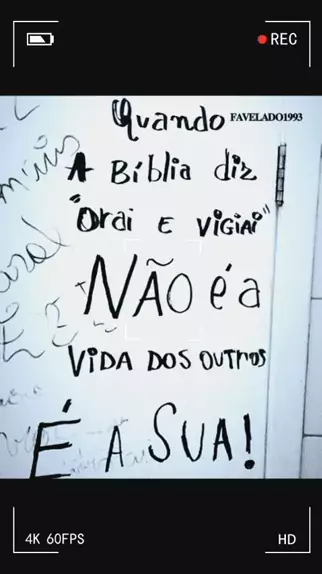 REC
Quando FAVELADO1993
A Bíblia diz
"Orai E ViGiai"
NÃO é a
ViDA DOS OUTROS
É A SUA!
4K 60FPS HD